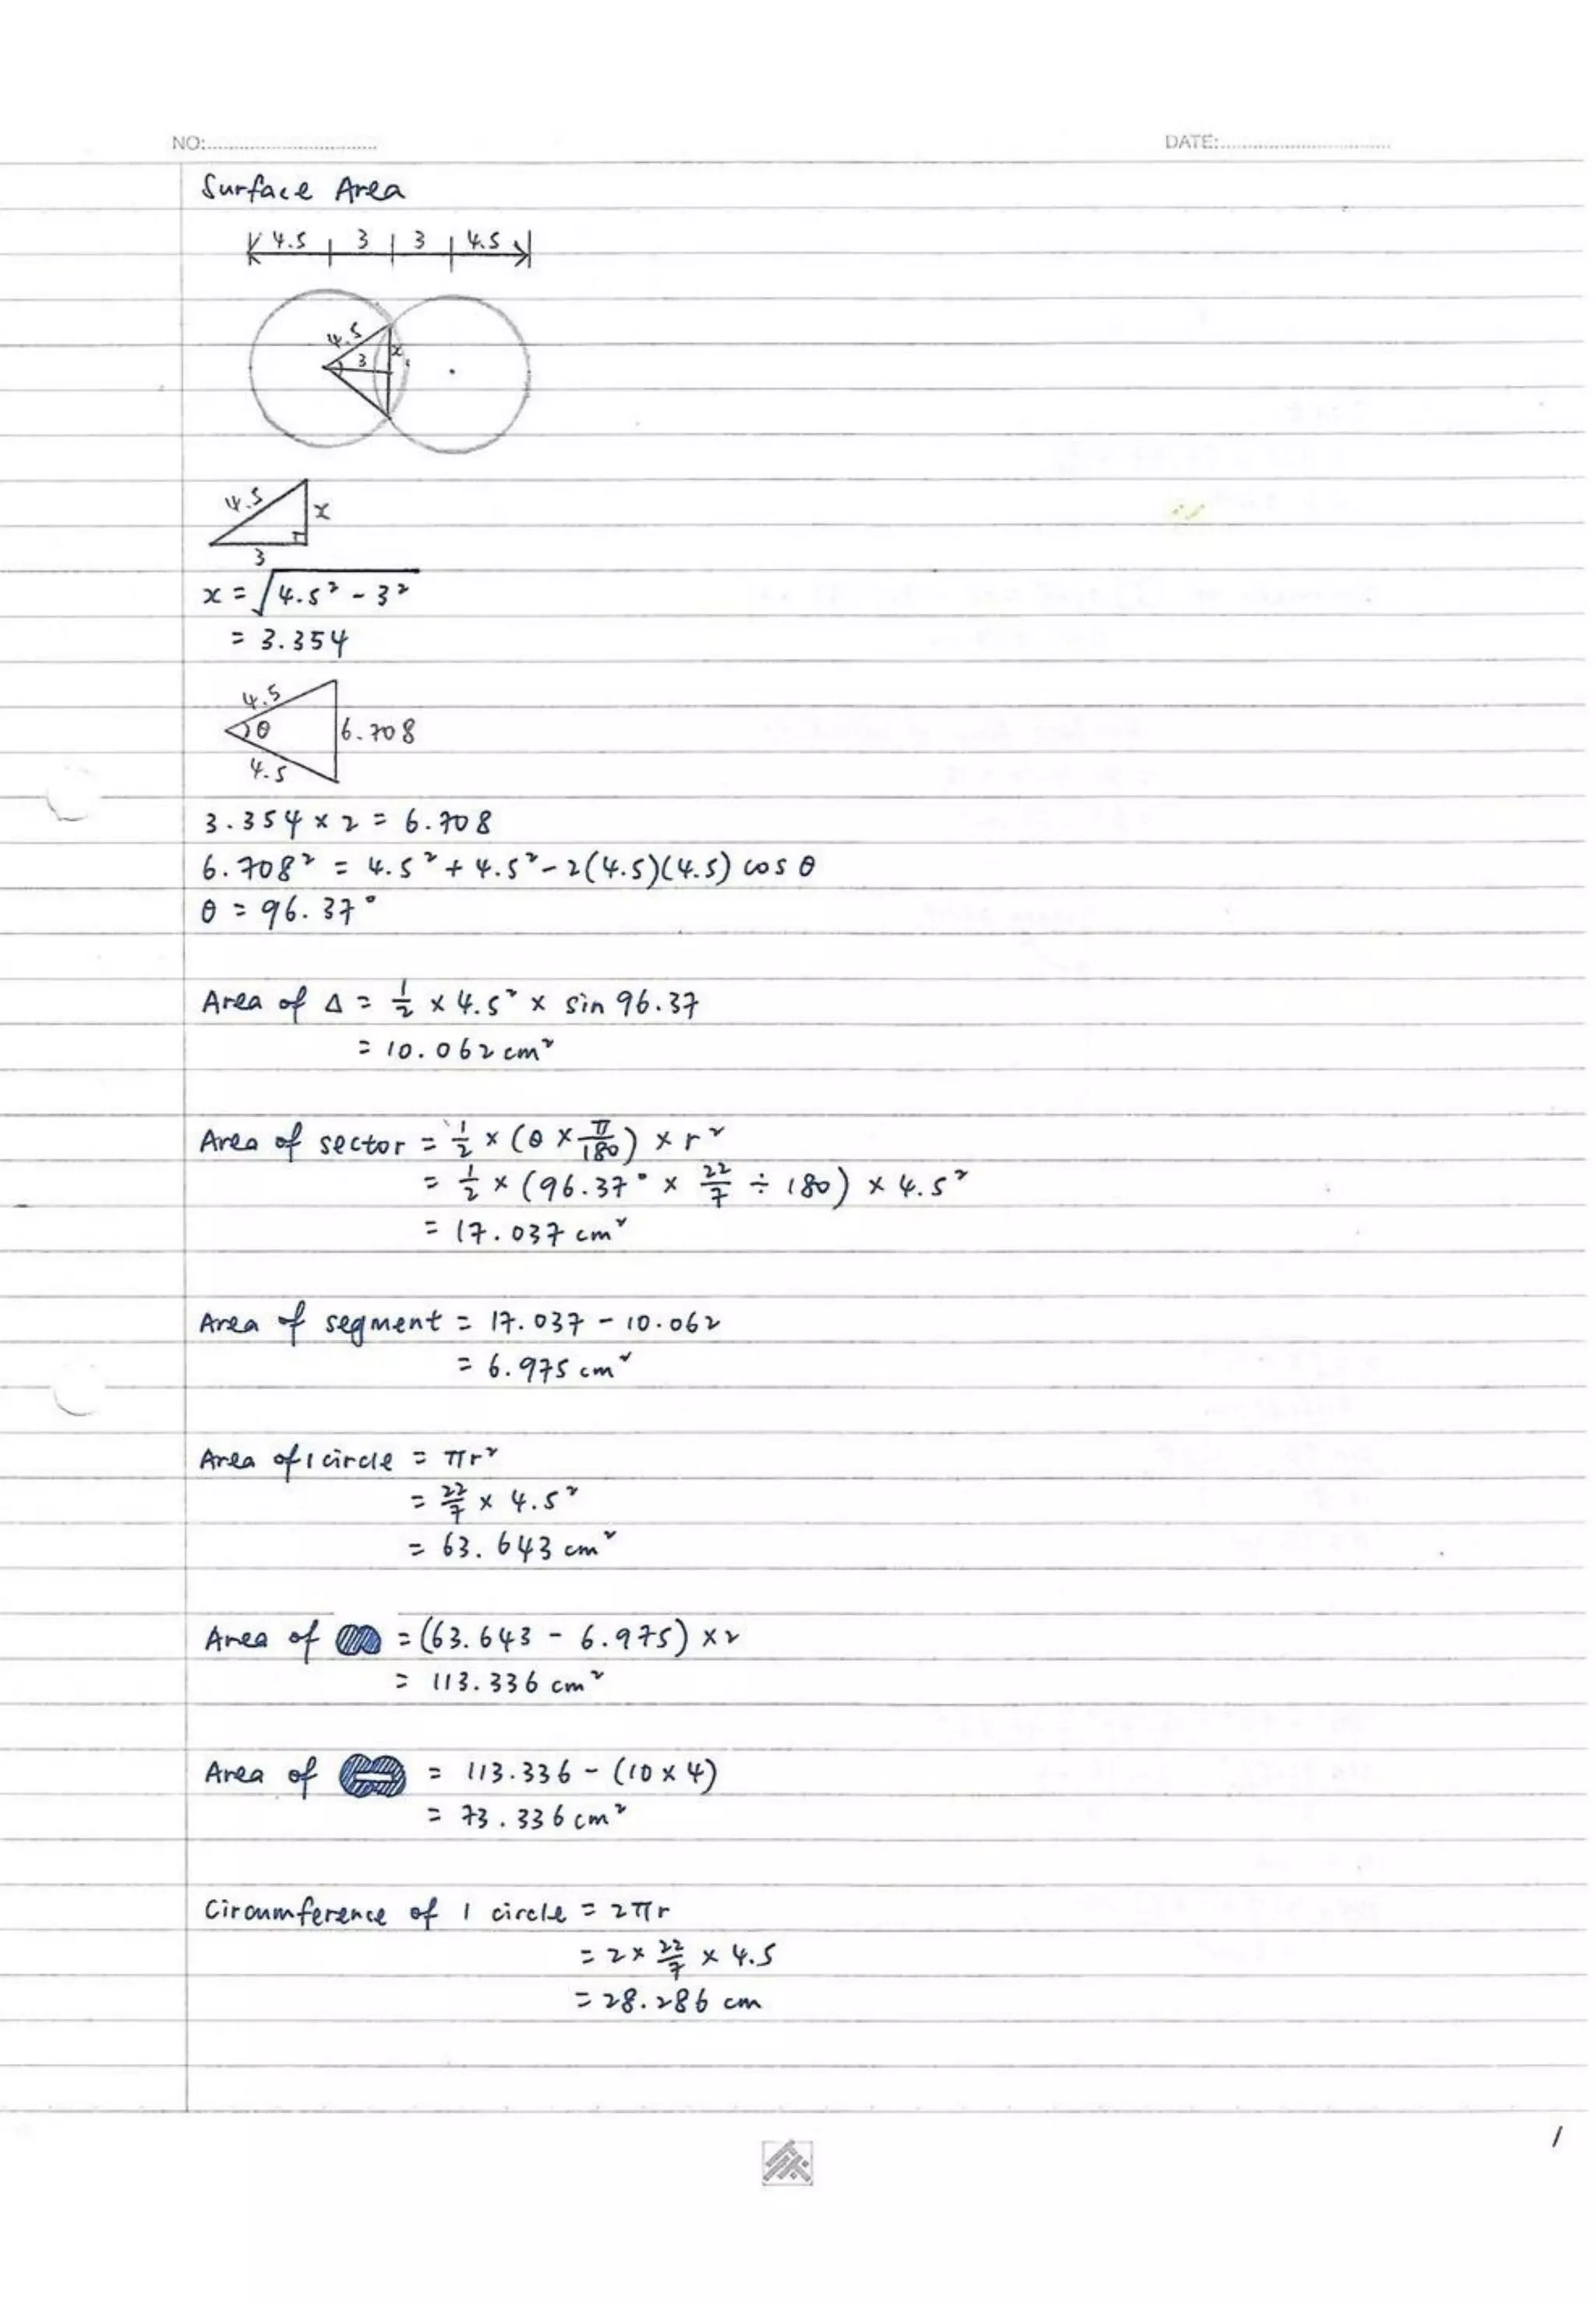 NO:
DATE:
Surface Area
4.5 3 3 4.5
4.5
3 x
4.5 x
3
x = √4.5² - 3²
= 3.354
4.5
θ 6.708
4.5
3.354 × 2 = 6.708
6.708² = 4.5² + 4.5² - 2(4.5)(4.5) cos θ
θ = 96.37°
Area of Δ = 1/2 × 4.5² × sin 96.37
= 10.062 cm²
Area of sector = 1/2 × (θ × π/180) × r²
= 1/2 × (96.37° × 22/7 ÷ 180) × 4.5²
= 17.037 cm²
Area of segment = 17.037 - 10.062
= 6.975 cm²
Area of 1 circle = πr²
= 22/7 × 4.5²
= 63.643 cm²
Area of = (63.643 - 6.975) × 2
= 113.336 cm²
Area of = 113.336 - (10 × 4)
= 73.336 cm²
Circumference of 1 circle = 2πr
= 2 × 22/7 × 4.5
= 28.286 cm
1